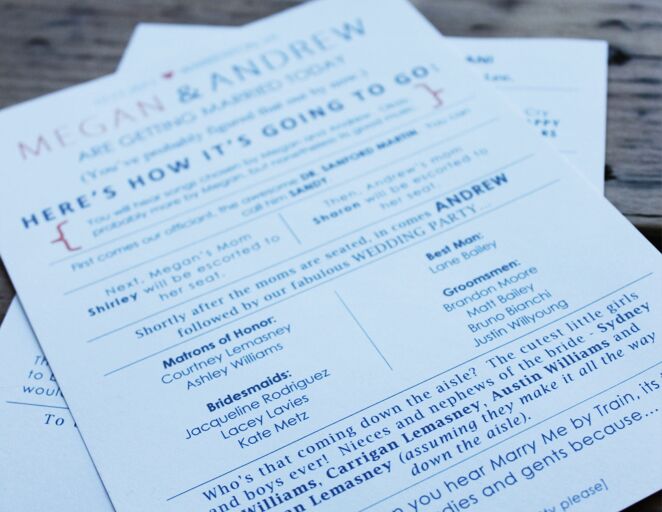 MEGAN & ANDREW
ARE GETTING MARRIED TODAY
(You've probably figured that out by now.)
HERE'S HOW IT'S GOING TO GO:
{ You will hear songs chosen by Megan and Andrew. Okay, }
probably more by Megan, but nonetheless in good mood.
First comes our officiant, the awesome DR. SANFORD MARTIN. You can
call him SANDY
Next, Megan's Mom
Shirley will be escorted to
her seat.
Then, Andrew's mom
Sharon will be escorted to
her seat.
Shortly after the moms are seated, in comes ANDREW
followed by our fabulous WEDDING PARTY...
Matrons of Honor:
Courtney Lemasney
Ashley Williams
Bridesmaids:
Jacqueline Rodriguez
Lacey Lavies
Kate Metz
Best Man:
Lane Bailey
Groomsmen:
Brandon Moore
Matt Bailey
Bruno Bianchi
Justin Willyoung
Who's that coming down the aisle? The cutest little girls
and boys ever! Nieces and nephews of the bride - Sydney
Williams, Carrigan Lemasney, Austin Williams and
an Lemasney (assuming they make it all the way
down the aisle).
n you hear Marry Me by Train, its
dies and gents because...
ty please]
To